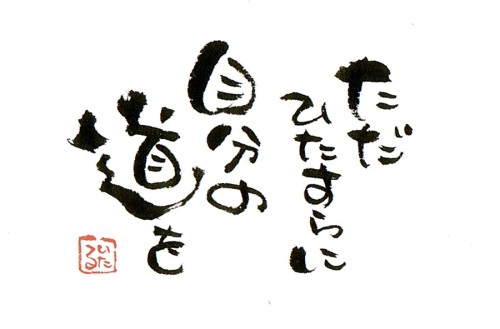 ただ
ひたすらに
自分の
道を